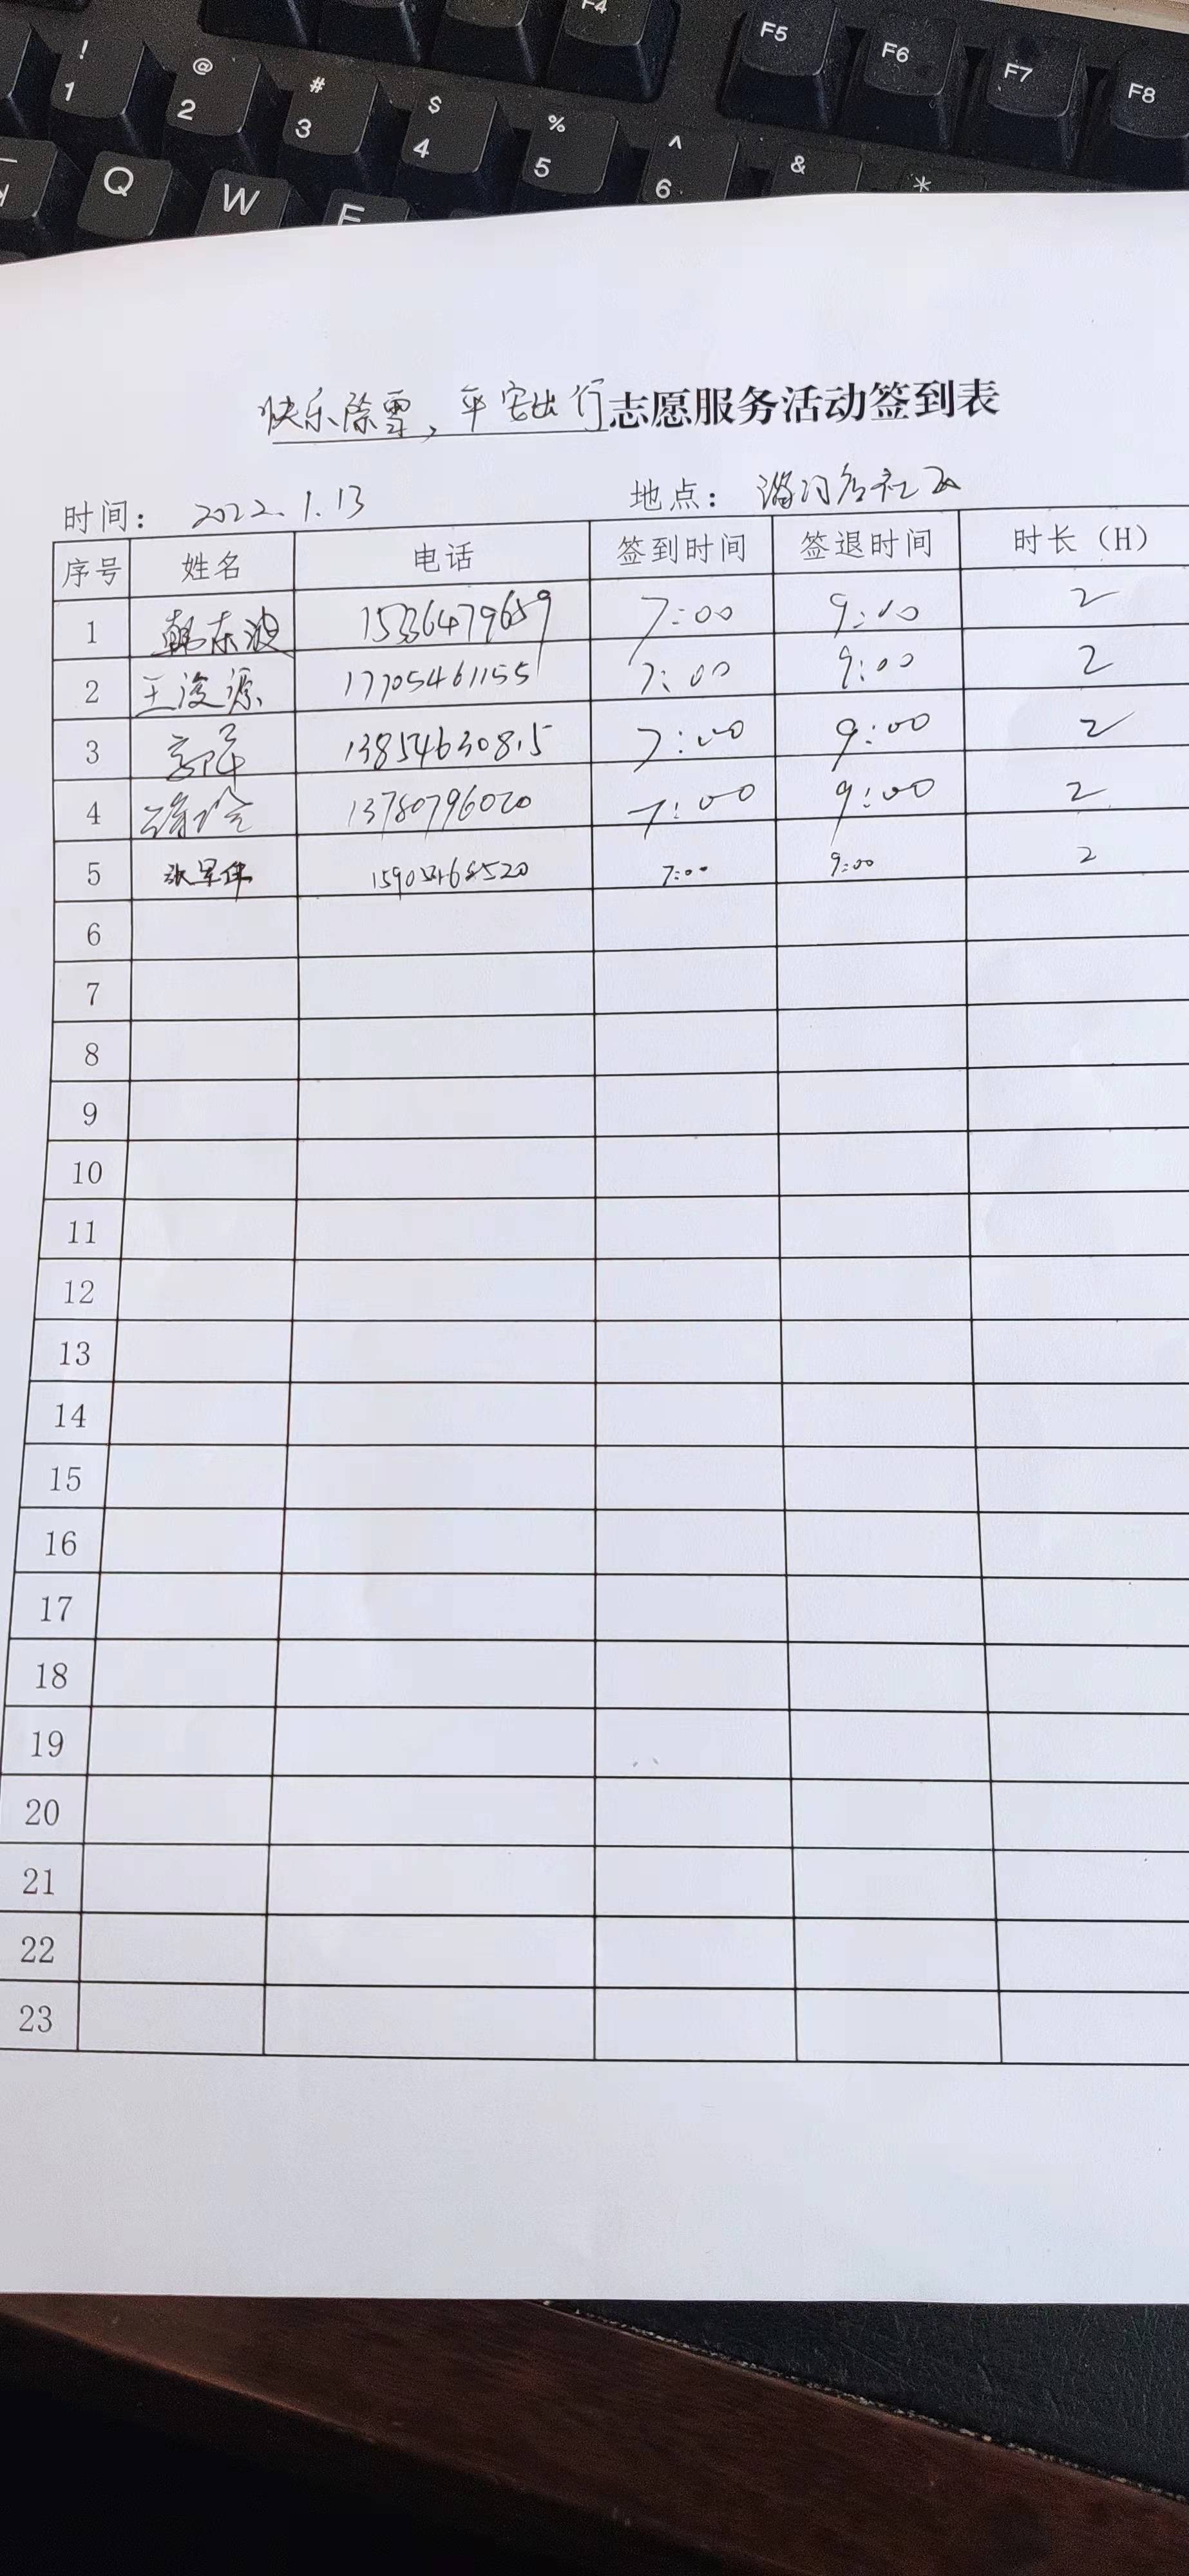 F4 F5 F6 F7 F8
! 1 @ 2 # 3 $ 4 % 5 ^ 6 & *
Q W E
快乐除雪、平安出行志愿服务活动签到表
时间： 2022.1.13 地点： 社区
序号 姓名 电话 签到时间 签退时间 时长（H）
1 韩东波 15336479659 7:00 9:00 2
2 王浚源 17705461155 7:00 9:00 2
3 13854630815 7:00 9:00 2
4 13780796020 7:00 9:00 2
5 7:00 9:00 2
6
7
8
9
10
11
12
13
14
15
16
17
18
19
20
21
22
23